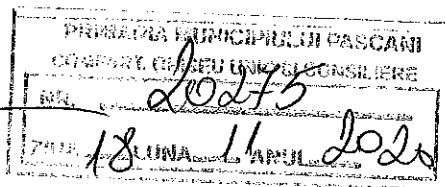 PRIMĂRIA MUNICIPIULUI PAȘCANI
COMPART. GHIȘEU UNIC ȘI CONSILIERE
NR. 20275
ZIUA 18 LUNA 11 ANUL 2020